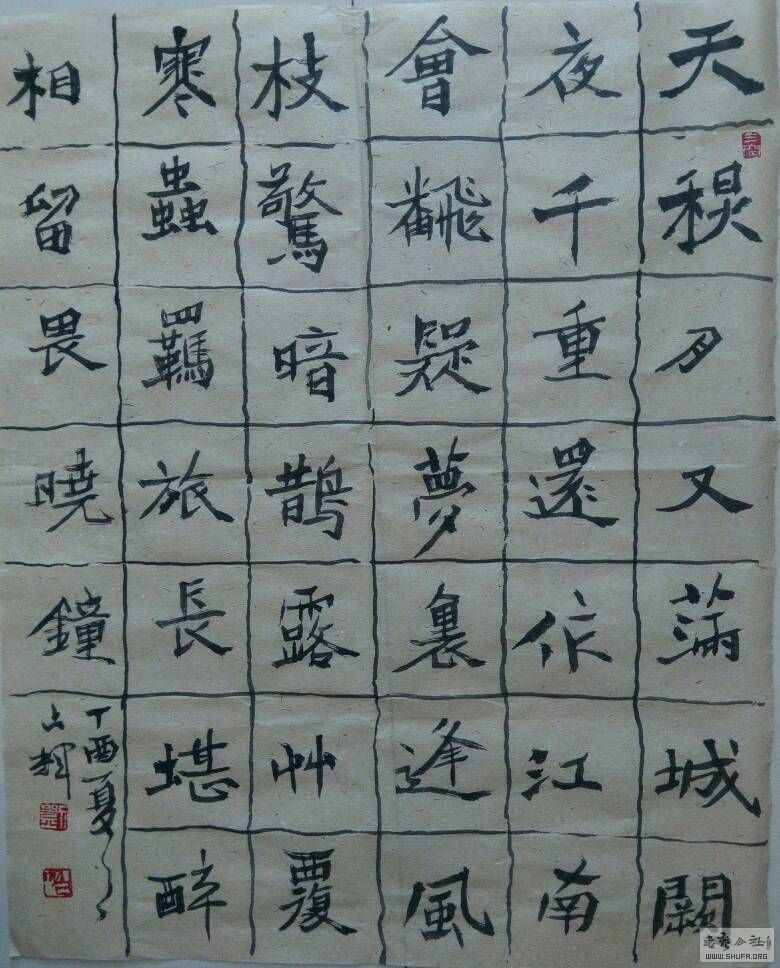 天秋月又滿城闕
夜千重還作江南
會飜疑夢裏逢風
枝驚暗鵲露艸覆
寒蟲羈旅長堪醉
相留畏曉鐘
丁酉夏
书艺公社
WWW.SHUFA.ORG